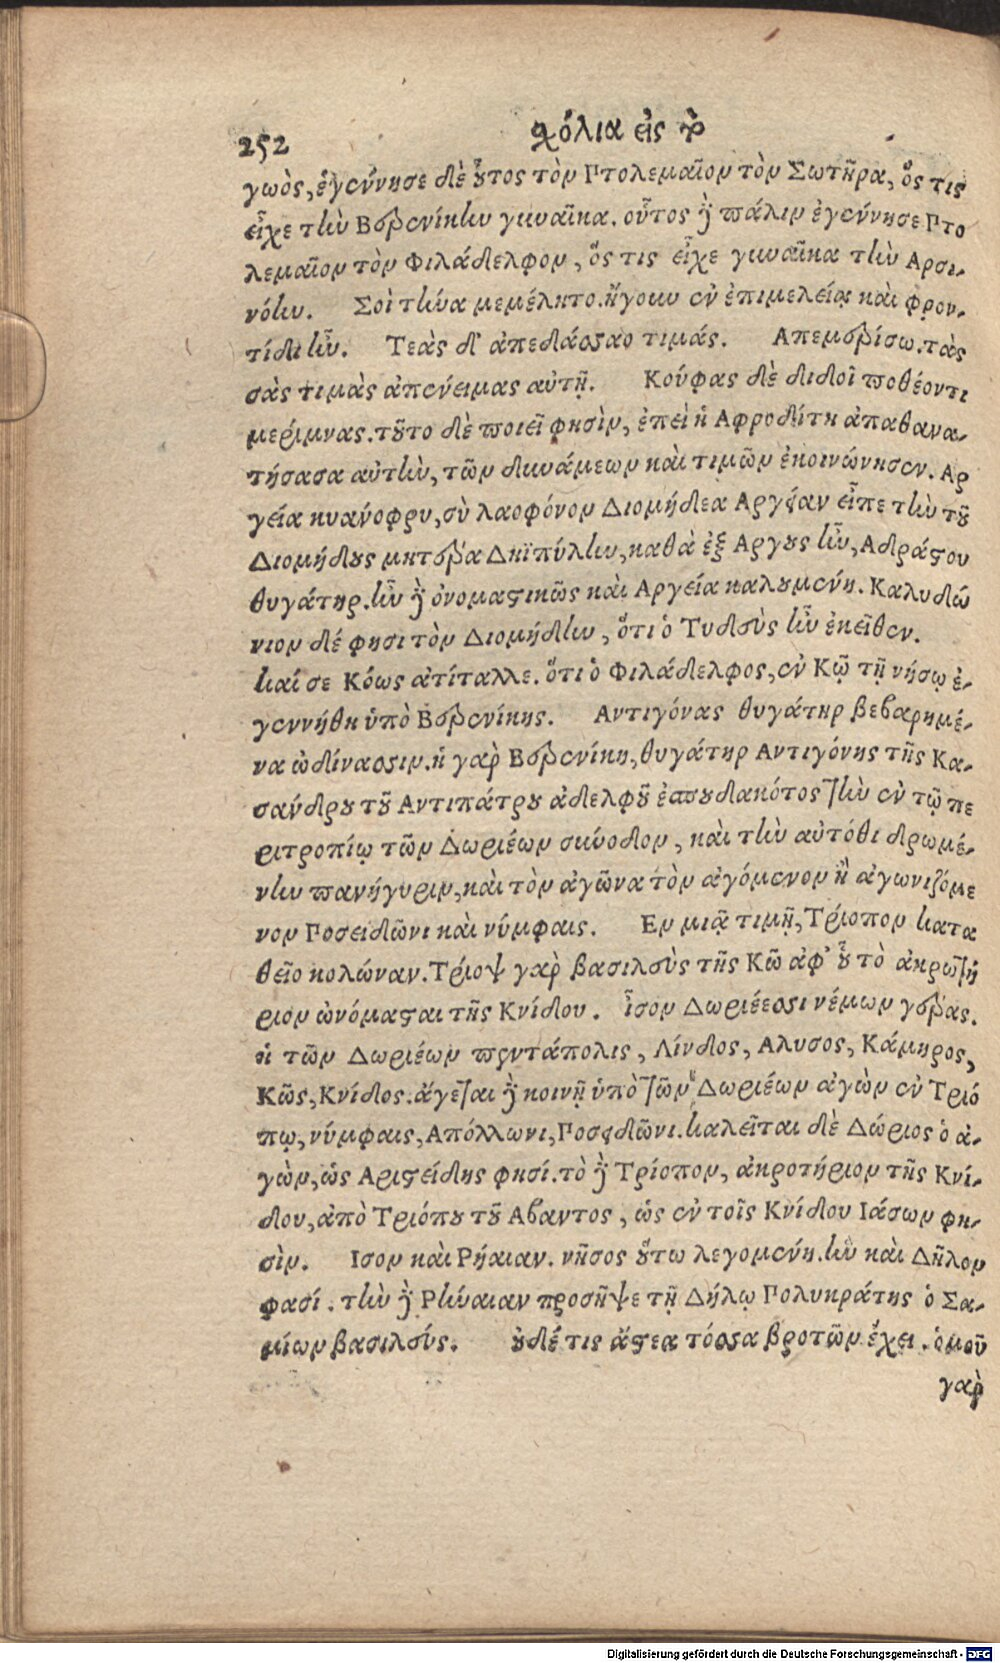 252 σχόλια εἰς τὸ
γωὸς, ἐγέννησε δὲ οὗτος τὸν Πτολεμαῖον τὸν Σωτῆρα, ὅς τις
εἶχε τὴν Βερενίκην γυναῖκα. οὗτος δὲ πάλιν ἐγέννησε Πτο
λεμαῖον τὸν Φιλάδελφον, ὅς τις εἶχε γυναῖκα τὴν Αρσι-
νόην. Σοὶ τήνα μεμέλητο. ἤγουν ἐν ἐπιμελείᾳ καὶ φρον-
τίδι ἦν. Τεὰς δ' ἀπεδάσσαο τιμάς. Απεμερίσω. τὰς
σὰς τιμὰς ἀπένειμας αὐτῇ. Κούφας δὲ διδοῖ ποθέοντι
μερίμνας. τοῦτο δὲ ποιεῖ φησὶν, ἐπεὶ ἡ Αφροδίτη ἀπαθανα-
τήσασα αὐτὴν, τῶν δυνάμεων καὶ τιμῶν ἐκοινώνησεν. Αρ
γεία κυάνοφρυ, σὺ λαοφόνον Διομήδεα Αργείαν εἶπε τὴν τοῦ
Διομήδους μητέρα Δηϊπύλην, καθὰ ἐξ Αργους ἦν, Αδράστου
θυγάτηρ. ἦν δὲ ὀνομαστικῶς καὶ Αργεία καλουμένη. Καλυδώ
νιον δέ φησι τὸν Διομήδην, ὅτι ὁ Τυδεὺς ἦν ἐκεῖθεν.
Καί σε Κόως ἀτίταλλε. ὅτι ὁ Φιλάδελφος, ἐν Κῷ τῇ νήσῳ ἐ-
γεννήθη ὑπὸ Βερενίκης. Αντιγόνας θυγάτηρ βεβαρημέ-
να ὠδίνασσιν. ἡ γὰρ Βερενίκη, θυγάτηρ Αντιγόνης τῆς Κα-
σάνδρου τοῦ Αντιπάτρου ἀδελφοῦ ἐσπουδακότος τὴν ἐν τῷ πε
ριτροπίῳ τῶν Δωριέων σύνοδον, καὶ τὴν αὐτόθι δρωμέ-
νην πανήγυριν, καὶ τὸν ἀγῶνα τὸν ἀγόμενον ἢ ἀγωνιζόμε
νον Ποσειδῶνι καὶ νύμφαις. Εν μιᾷ τιμῇ, Τρίοπον κατα
θεῖο κολώναν. Τρίοψ γὰρ βασιλεὺς τῆς Κῶ ἀφ' οὗ τὸ ἀκρωτή
ριον ὠνόμασται τῆς Κνίδου. ἶσον Δωριέεσσι νέμων γέρας.
ἡ τῶν Δωριέων πεντάπολις, Λίνδος, Αλυσος, Κάμηρος,
Κῶς, Κνίδος. ἄγεται δὲ κοινῇ ὑπὸ τῶν Δωριέων ἀγὼν ἐν Τριό
πῳ, νύμφαις, Απόλλωνι, Ποσειδῶνι. Καλεῖται δὲ Δώριος ὁ ἀ-
γὼν, ὡς Αριστείδης φησί. τὸ δὲ Τρίοπον, ἀκροτήριον τῆς Κνί-
δου, ἀπὸ Τριόπου τοῦ Αβαντος, ὡς ἐν τοῖς Κνίδου Ιάσων φη-
σὶν. Ισον καὶ Ρήαιαν. νῆσος οὕτω λεγομένη. ἣν καὶ Δῆλον
φασί. τὴν δὲ Ρήναιαν προσῆψε τῇ Δήλῳ Πολυκράτης ὁ Σα-
μίων βασιλεύς. οὐδέ τις ἄστεα τόσσα βροτῶν ἔχει. ὁμοῦ
γὰρ
Digitalisierung gefördert durch die Deutsche Forschungsgemeinschaft - DFG